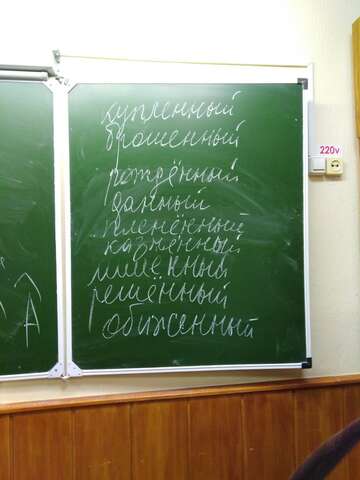 купленный
брошенный
рождённый
данный
пленённый
казнённый
лишённый
решённый
обиженный
220v
A